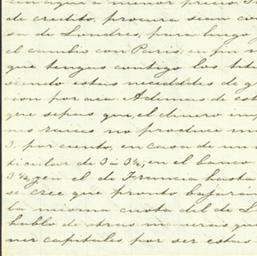 con aqui a menor precio. S
de credito, procura sean co
sa de Londres, para luego
el cambio con Paris; en fin
que tengas contigo los
siendo estas necesidades de g
cion por acá. Ademas de est
que sepas que, el dinero in
nes raices no produce m
3. por ciento, en casa de un
ticular de 3 á 3½, en el banco
3½, y en el de Francia hasta
se cree que pronto bajarán
la misma cuota del de L
hablo de otras maneras que
ner capitales, por ser estas